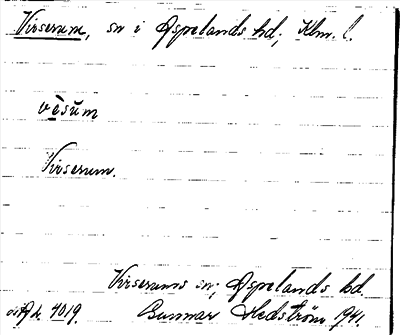 Virserum, sn i Aspelands hd, Klm. l.
vèsŭm
Virserum.
Virserums sn, Aspelands hd.
Gunnar Hedström 1941.
4019.